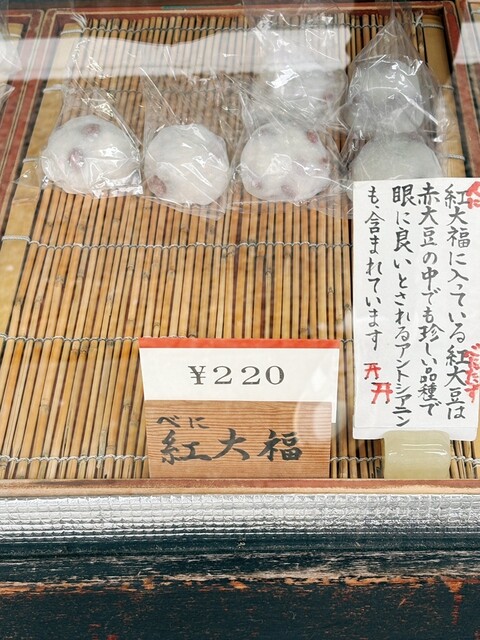 紅大福に入っている紅大豆は
赤大豆の中でも珍しい品種で
眼に良いとされるアントシアニン
も含まれています
¥220
べに
紅大福